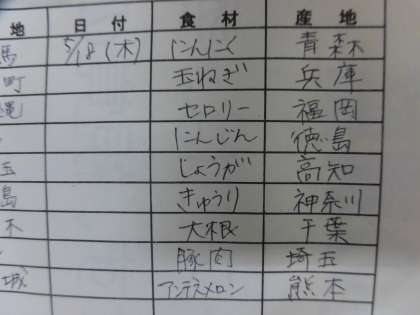 地 日 付 食 材 産 地
馬 5/18 (木) にんにく 青森
町 玉ねぎ 兵庫
縄 セロリー 福岡
にんじん 徳島
玉 じょうが 高知
島 きゅうり 神奈川
木 大根 千葉
豚肉 埼玉
城 アンデスメロン 熊本